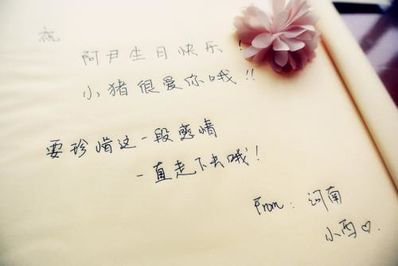 祝
阿尹生日快乐！
小猪很爱你哦!!
要珍惜这一段恋情
一直走下去哦!
From: 河南
小西♡.